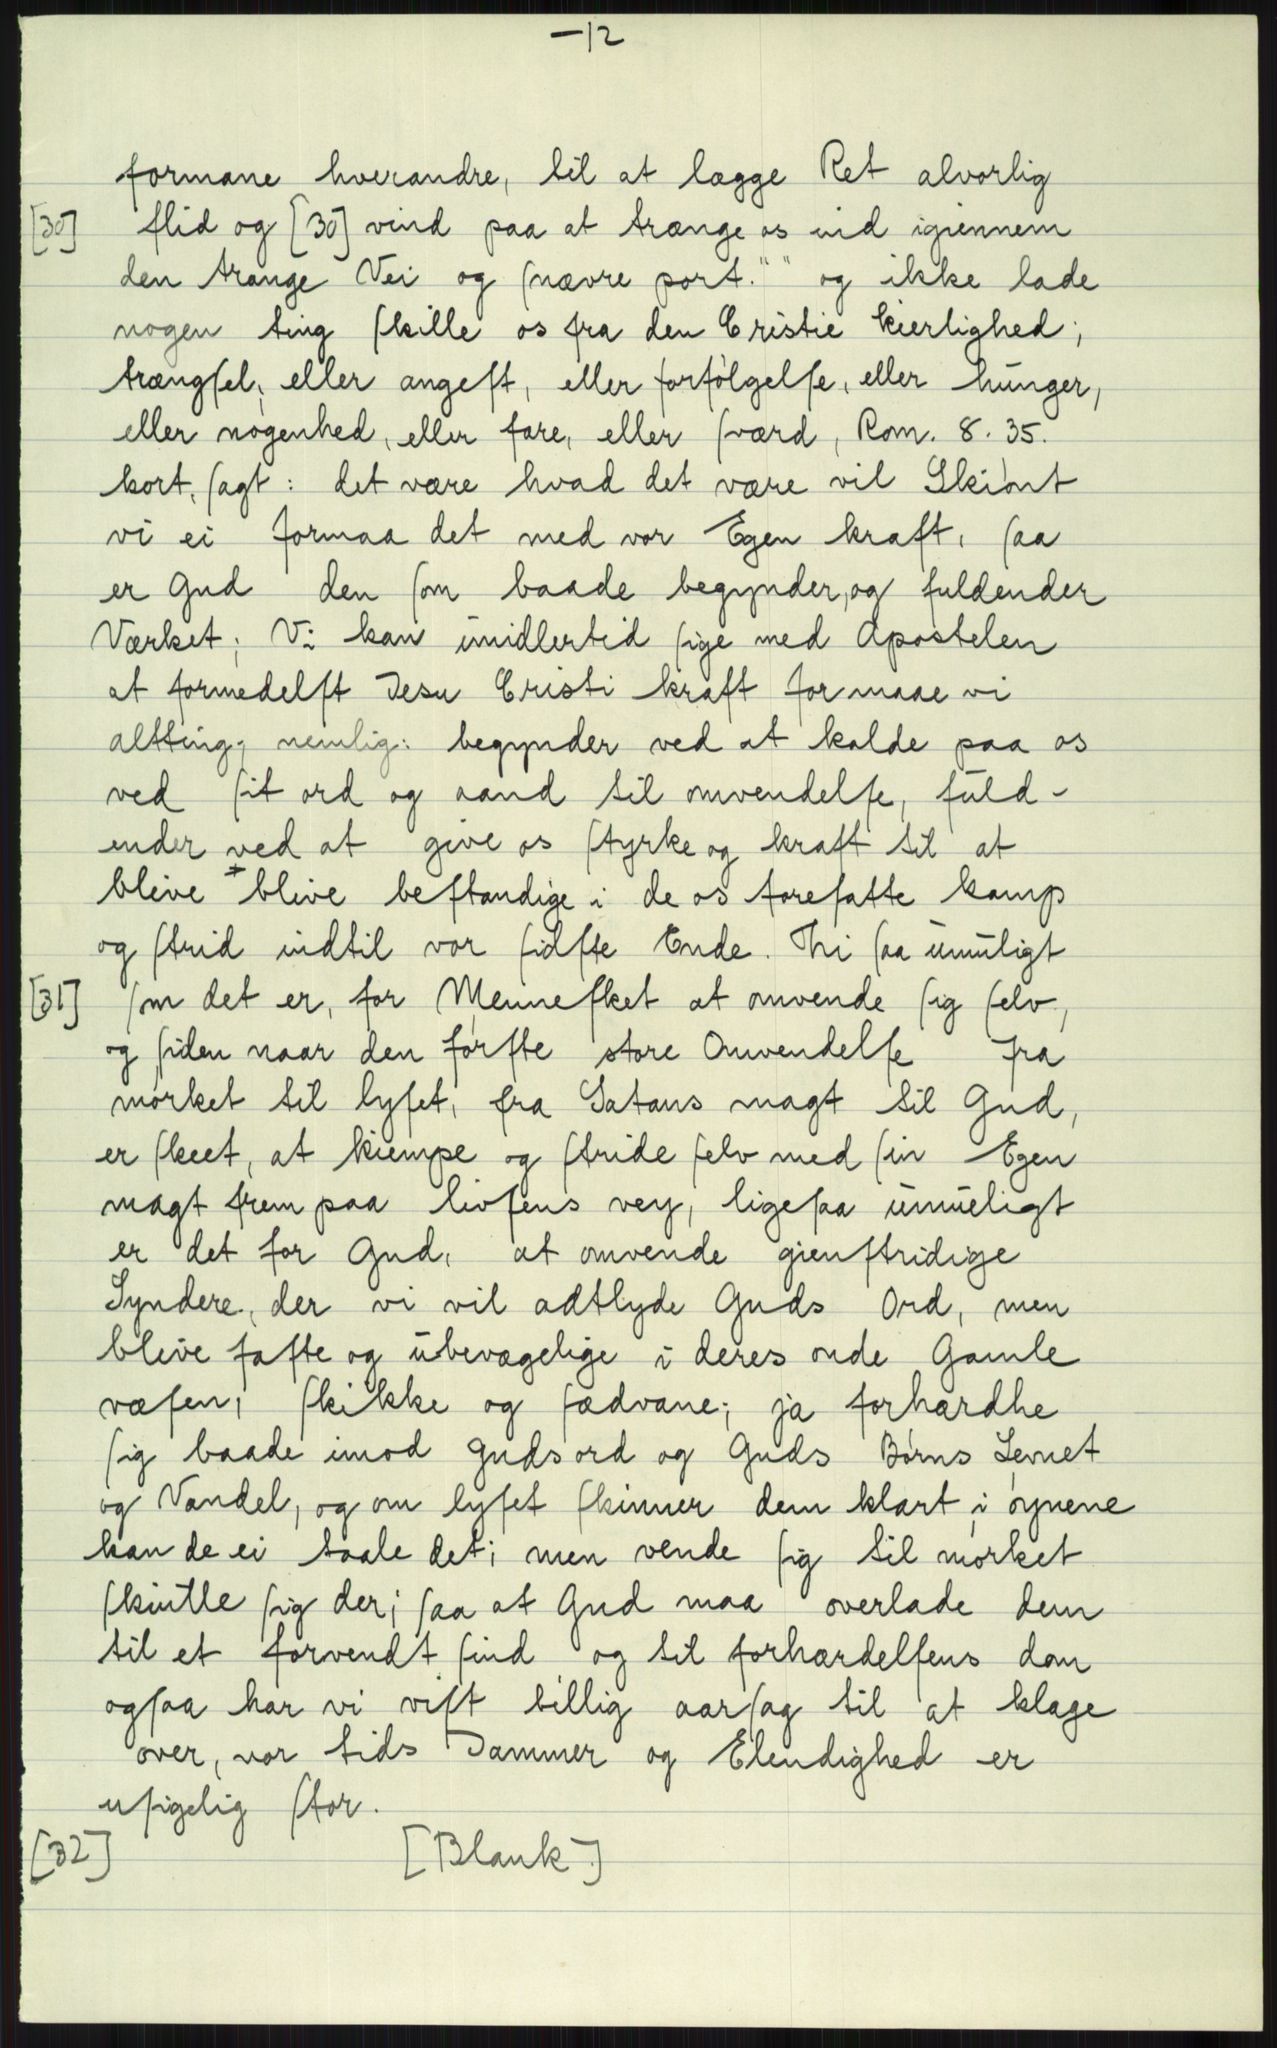 -12
formane hverandre, til at lægge Ret alvorlig
[30] flid og [30] vind paa at trænge os ind igiennem
den trange Vei og snævre port." " og ikke lade
nogen ting skille os fra den Cristie kierlighed;
trængsel; eller angest, eller forfølgelse, eller hunger,
eller nøgenhed, eller fare, eller sværd, Rom. 8. 35.
kort, sagt: det være hvad det være vil Skiønt
vi ei formaa det med vor Egen kraft, saa
er Gud den som baade begynder, og fuldender
Værket; Vi kan imidlertid sige med Apostelen
at formedelst Jesu Cristi kraft formaae vi
altting, nemlig: begynder ved at kalde paa os
ved sit ord og aand til omvendelse, fuld-
ender ved at give os styrke og kraft til at
blive + blive bestandige i de os foresatte kamp
og strid indtil vor sidste Ende. Thi saa umuligt
[31] som det er, for Mennesket at omvende sig selv,
og siden naar den første store Omvendelse fra
mørket til lyset, fra Satans magt til Gud,
er skeet, at kiempe og stride selv med sin Egen
magt frem paa livsens vey, ligesaa umueligt
er det for Gud, at omvende gienstridige
Syndere, der vi vil adtlyde Guds Ord, men
blive faste og ubevægelige i deres onde Gamle
væsen, skikke og sædvane; ja forhærdhe
sig baade imod Guds ord og Guds Børns Levnet
og Vandel, og om lyset skinner dem klart i øynene
kan de ei taale det; men vende sig til mørket
skiutle sig der; saa at Gud maa overlade dem
til et forvendt sind og til forhærdelsens dom
ogsaa har vi vist billig aarsag til at klage
over, vor tids Jammer og Elendighed er
usigelig stor.
[32] [Blank]